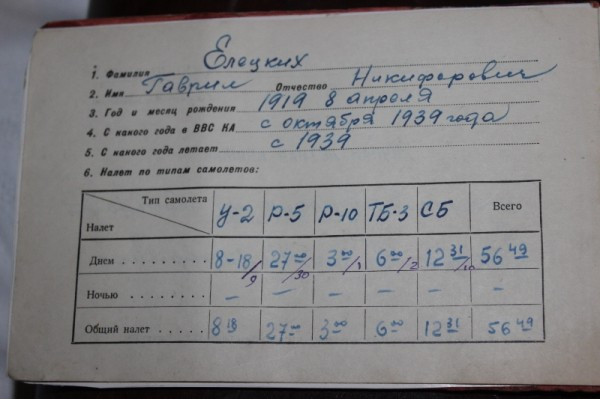 1. Фамилия Елецких
2. Имя Гаврил Отчество Никифорович
3. Год и месяц рождения 1919 8 апреля
4. С какого года в ВВС КА с октября 1939 года
5. С какого года летает с 1939
6. Налет по типам самолетов:
Тип самолета Налет У-2 Р-5 Р-10 ТБ-3 СБ Всего
Днем . . . . . . . . . . 8-18/9 27 00/30 3 00/1 6 00/2 12 31/10 56 49
Ночью . . . . . . . . — — — — — —
Общий налет . . . . . 8 18 27 00 3 00 6 00 12 31 56 49